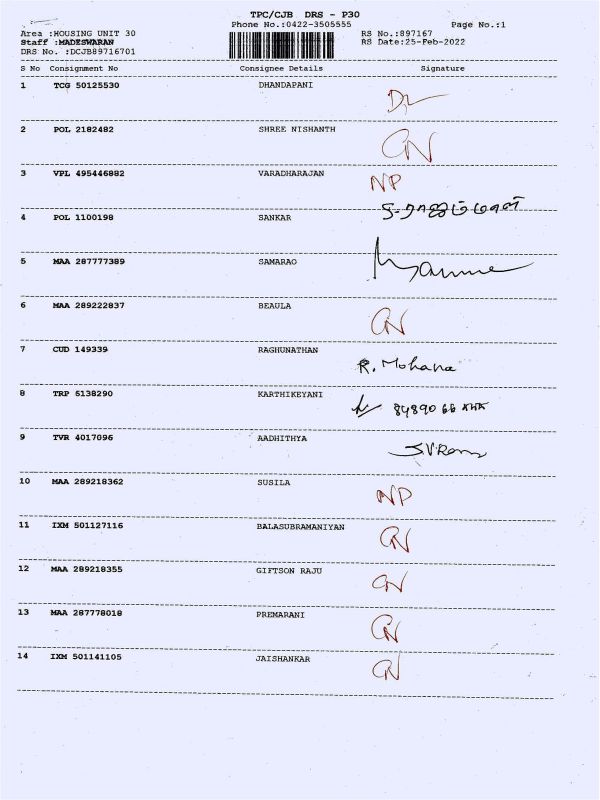 TPC/CJB DRS - P30
Phone No.:0422-3505555 Page No.:1
Area :HOUSING UNIT 30 RS No.:897167
Staff :MADESWARAN RS Date:25-Feb-2022
DRS No. :DCJB89716701
S No Consignment No Consignee Details Signature
1 TCG 50125530 DHANDAPANI
2 POL 2182482 SHREE NISHANTH CN
3 VPL 495446882 VARADHARAJAN NP
4 POL 1100198 SANKAR
5 MAA 287777389 SAMARAO
6 MAA 289222837 BEAULA CN
7 CUD 149339 RAGHUNATHAN R. Mohana
8 TRP 6138290 KARTHIKEYANI
9 TVR 4017096 AADHITHYA
10 MAA 289218362 SUSILA NP
11 IXM 501127116 BALASUBRAMANIYAN CN
12 MAA 289218355 GIFTSON RAJU CN
13 MAA 287778018 PREMARANI CN
14 IXM 501141105 JAISHANKAR CN